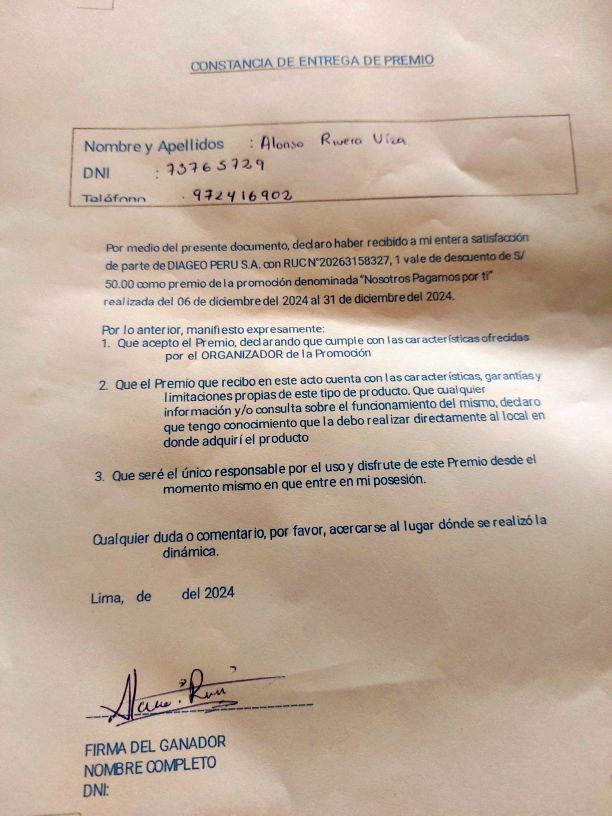 CONSTANCIA DE ENTREGA DE PREMIO
Nombre y Apellidos : Alonso Rivera Viza
DNI : 73765729
Teléfono : 972416902
Por medio del presente documento, declaro haber recibido a mi entera satisfacción
de parte de DIAGEO PERU S.A. con RUC N°20263158327, 1 vale de descuento de S/
50.00 como premio de la promoción denominada "Nosotros Pagamos por ti"
realizada del 06 de diciembre del 2024 al 31 de diciembre del 2024.
Por lo anterior, manifiesto expresamente:
1. Que acepto el Premio, declarando que cumple con las características ofrecidas
por el ORGANIZADOR de la Promoción
2. Que el Premio que recibo en este acto cuenta con las características, garantías y
limitaciones propias de este tipo de producto. Que cualquier
información y/o consulta sobre el funcionamiento del mismo, declaro
que tengo conocimiento que la debo realizar directamente al local en
donde adquirí el producto
3. Que seré el único responsable por el uso y disfrute de este Premio desde el
momento mismo en que entre en mi posesión.
Cualquier duda o comentario, por favor, acercarse al lugar dónde se realizó la
dinámica.
Lima, de del 2024
FIRMA DEL GANADOR
NOMBRE COMPLETO
DNI: